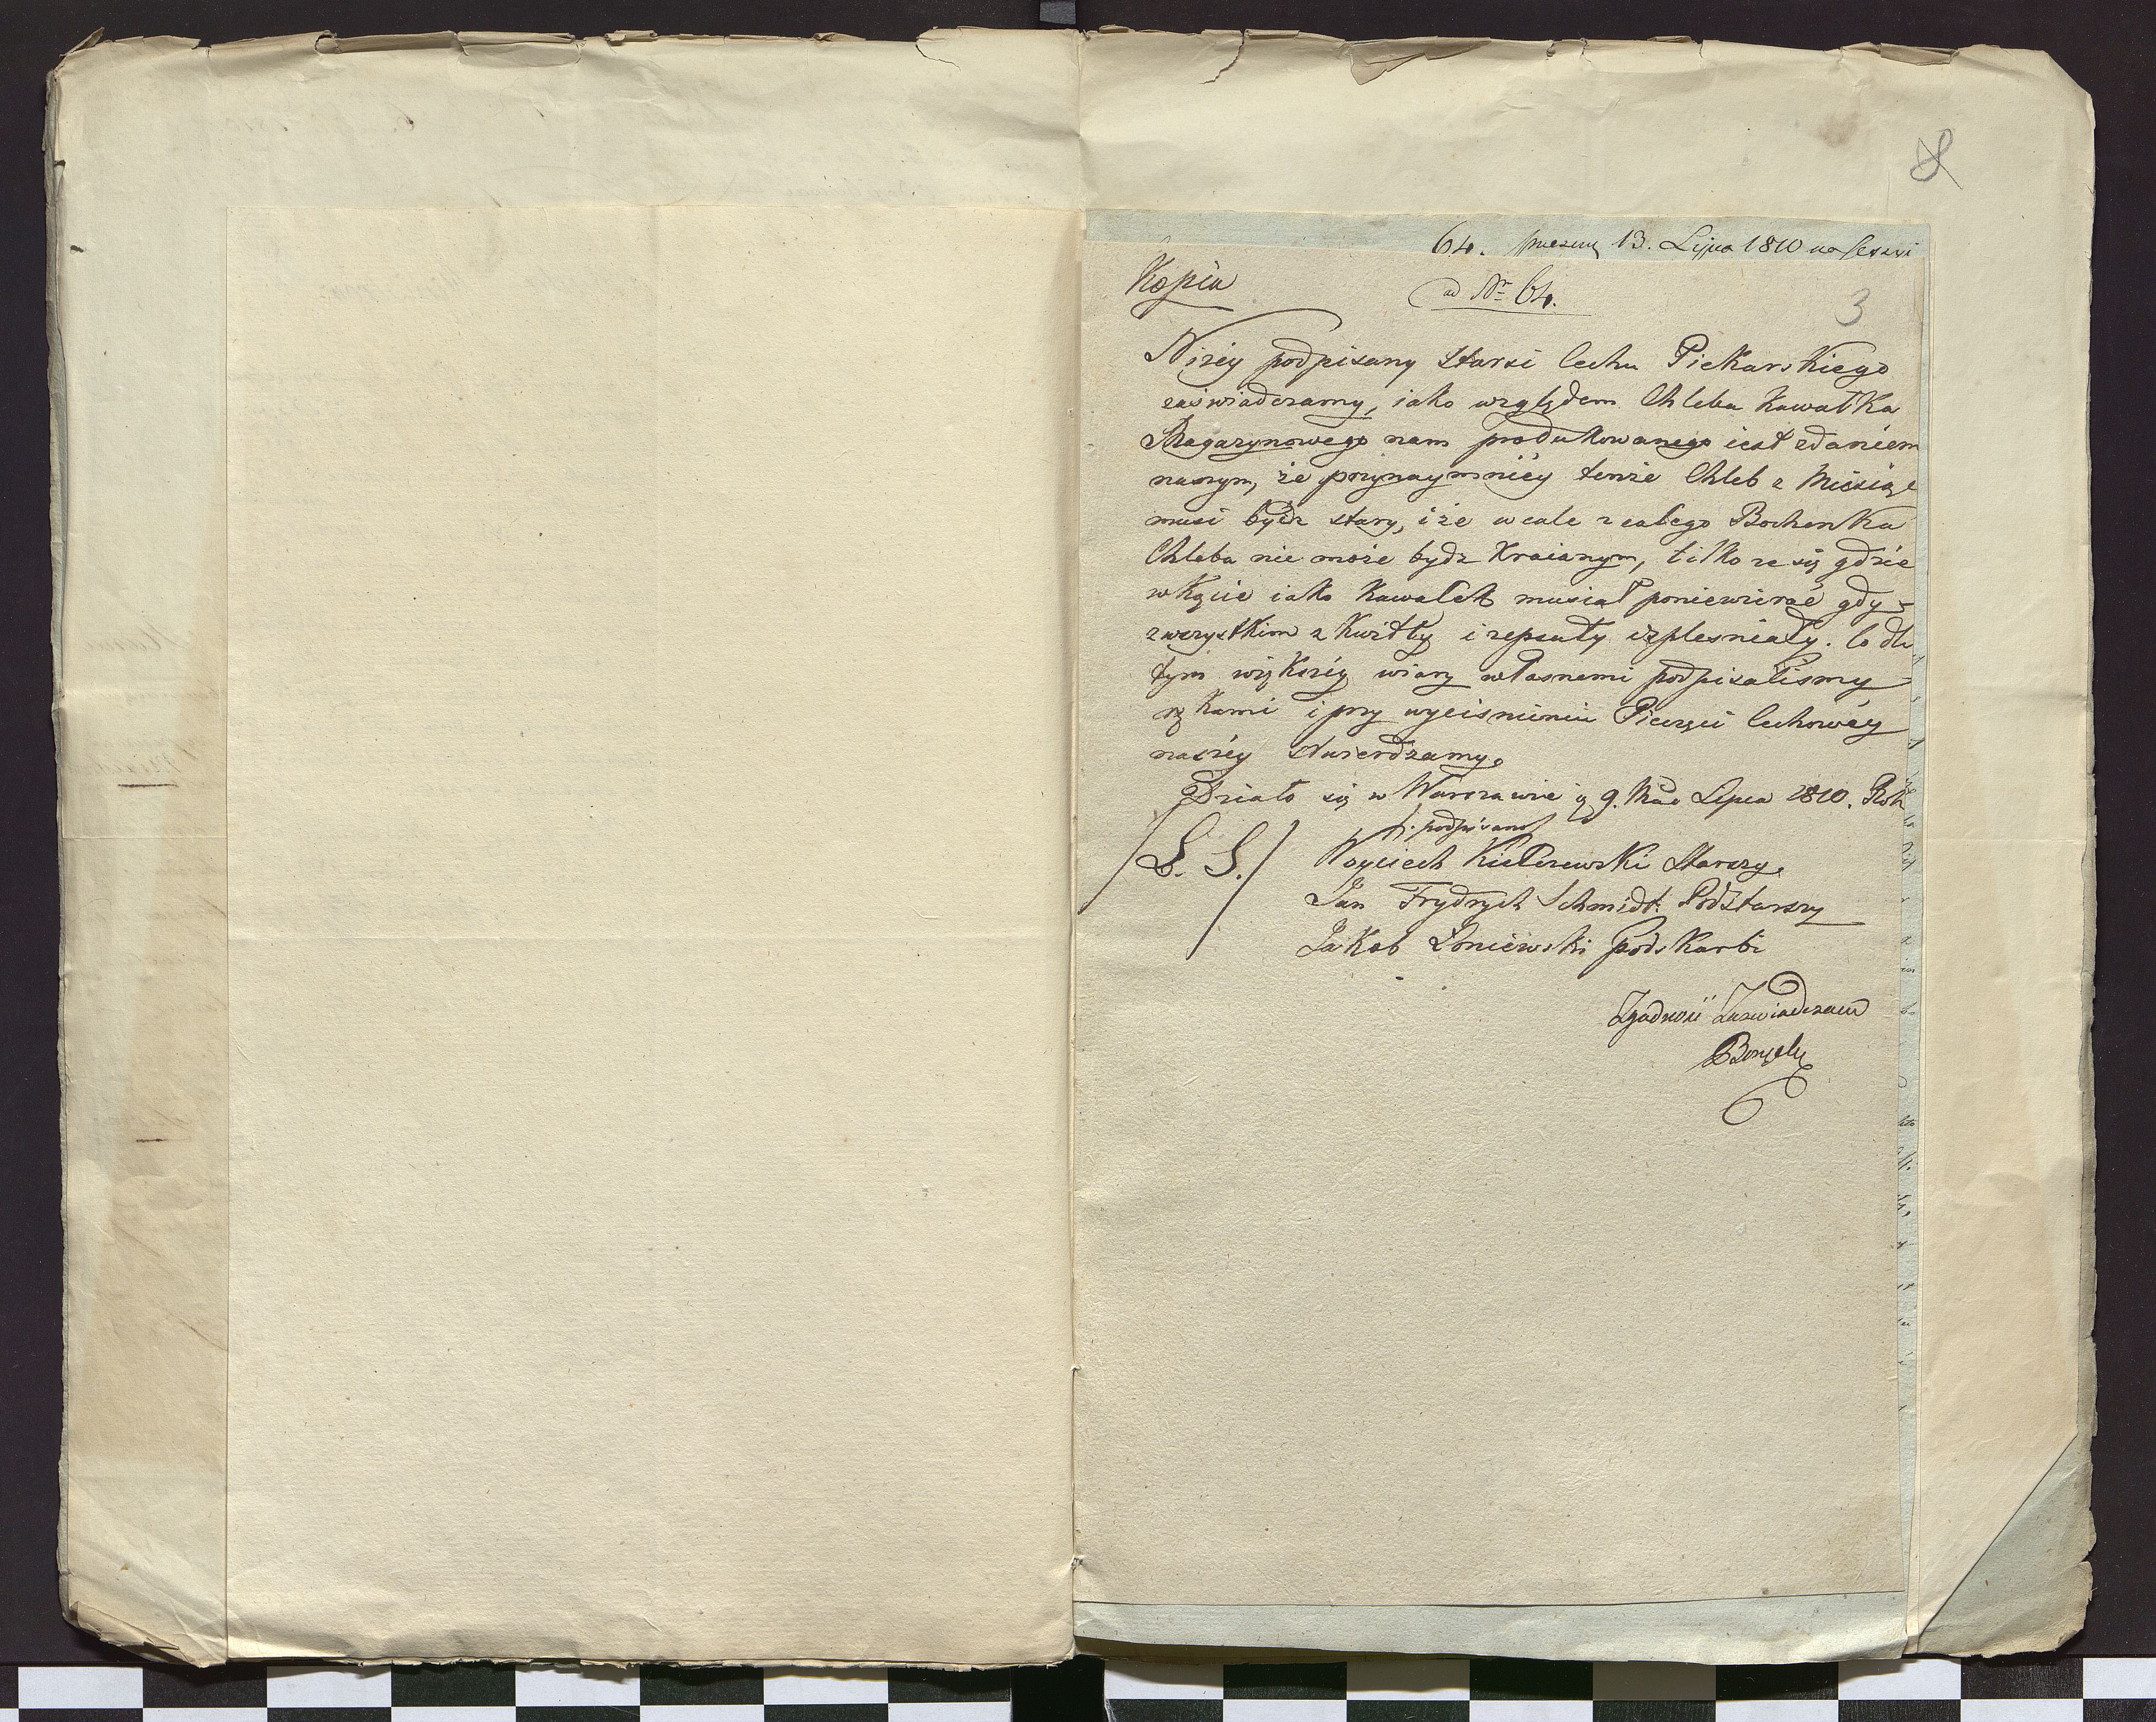 64. 13. Lipca 1810 na sessii
Kopia
ad Nr 64.
3
Niżey podpisany Starsi Cechu Piekarskiego
zaświadczamy, iako względem Chleba Kawałka
Magazynowego nam produkowanego iest zdaniem
naszym, że przynaymniéy tenże Chleb z Miesiąc
musi bydz stary, i że wcale z całego Bochenka
Chleba nie może bydz Kraianym, tilko ze się gdzie
w Kącie iako Kawałek musiał poniewierać gdy
zwszystkim zKwitły i zepsuty izplesniały. Co dla
tym większéy wiary własnemi podpisalismy
rękami i przy wycisnieniu Pieczęci Cechowéy
naszéy stwierdzamy.
Działo się w Warszawie 9. Lipca 1810. Roku
podpisano
/L. S./ Woyciech Starszy.
Jan Frydrych Schmidt. Podstarszy
Jakob Łoniewski podskarbi
Zgodność Zaswiadczam